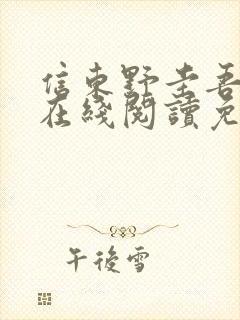 信東野圭吾
在綫閱讀免
午後雪